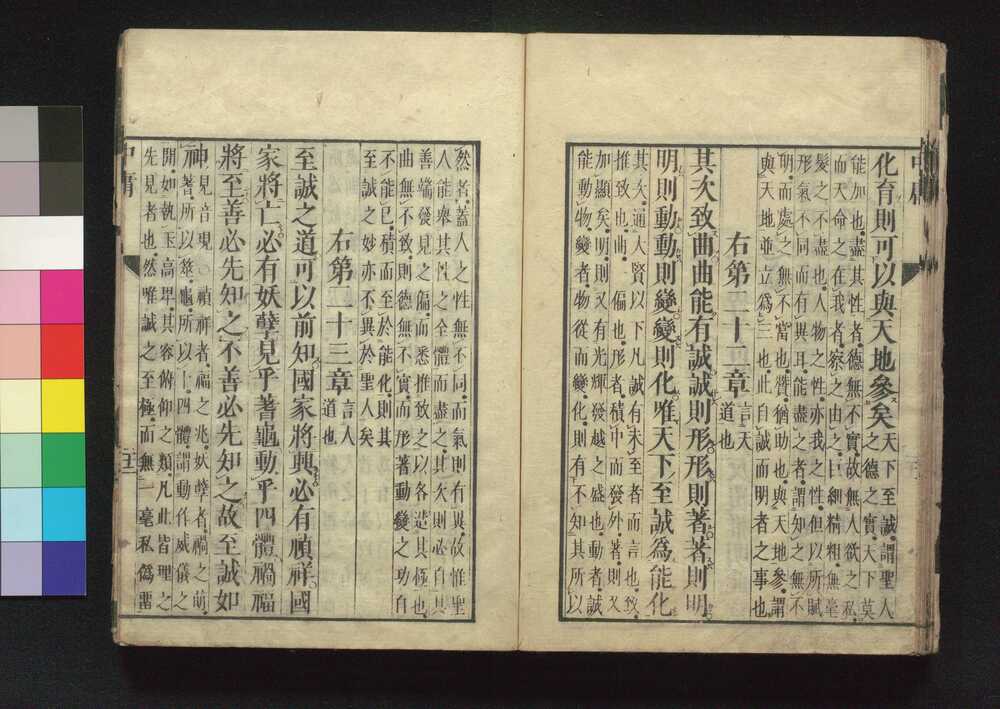 化育則可以與天地參矣天下至誠謂聖人
之德之實天下莫
能加也盡其性者德無不實故無人欲之私
而天命之在我者察之由之巨細精粗無毫
髮之不盡也人物之性亦我之性但以所賦
形氣不同而有異耳能盡之者謂知之無不
明而處之無不當也贊猶助也與天地參謂
與天地並立爲三也此自誠而明者之事也
右第二十二章言天
道也
其次致曲曲能有誠誠則形形則著著則明
明則動動則變變則化唯天下至誠爲能化
其次通大賢以下凡誠有未至者而言也致
推致也曲一偏也形者積中而發外著則又
加顯矣明則又有光輝發越之盛也動者誠
能動物變者物從而變化則有不知其所以
然者蓋人之性無不同而氣則有異故惟聖
人能舉其性之全體而盡之其次則必自其
善端發見之偏而悉推致之以各造其極也
曲無不致則德無不實而形著動變之功自
不能已積而至於能化則其
至誠之妙亦不異於聖人矣
右第二十三章言人
道也
至誠之道可以前知國家將興必有禎祥國
家將亡必有妖孽見乎蓍龜動乎四體禍福
將至善必先知之不善必先知之故至誠如
神見音現○禎祥者福之兆妖孽者禍之萌
蓍所以筮龜所以卜四體謂動作威儀之
閒如執玉高卑其容俯仰之類凡此皆理之
先見者也然唯誠之至極而無一毫私僞留
中庸